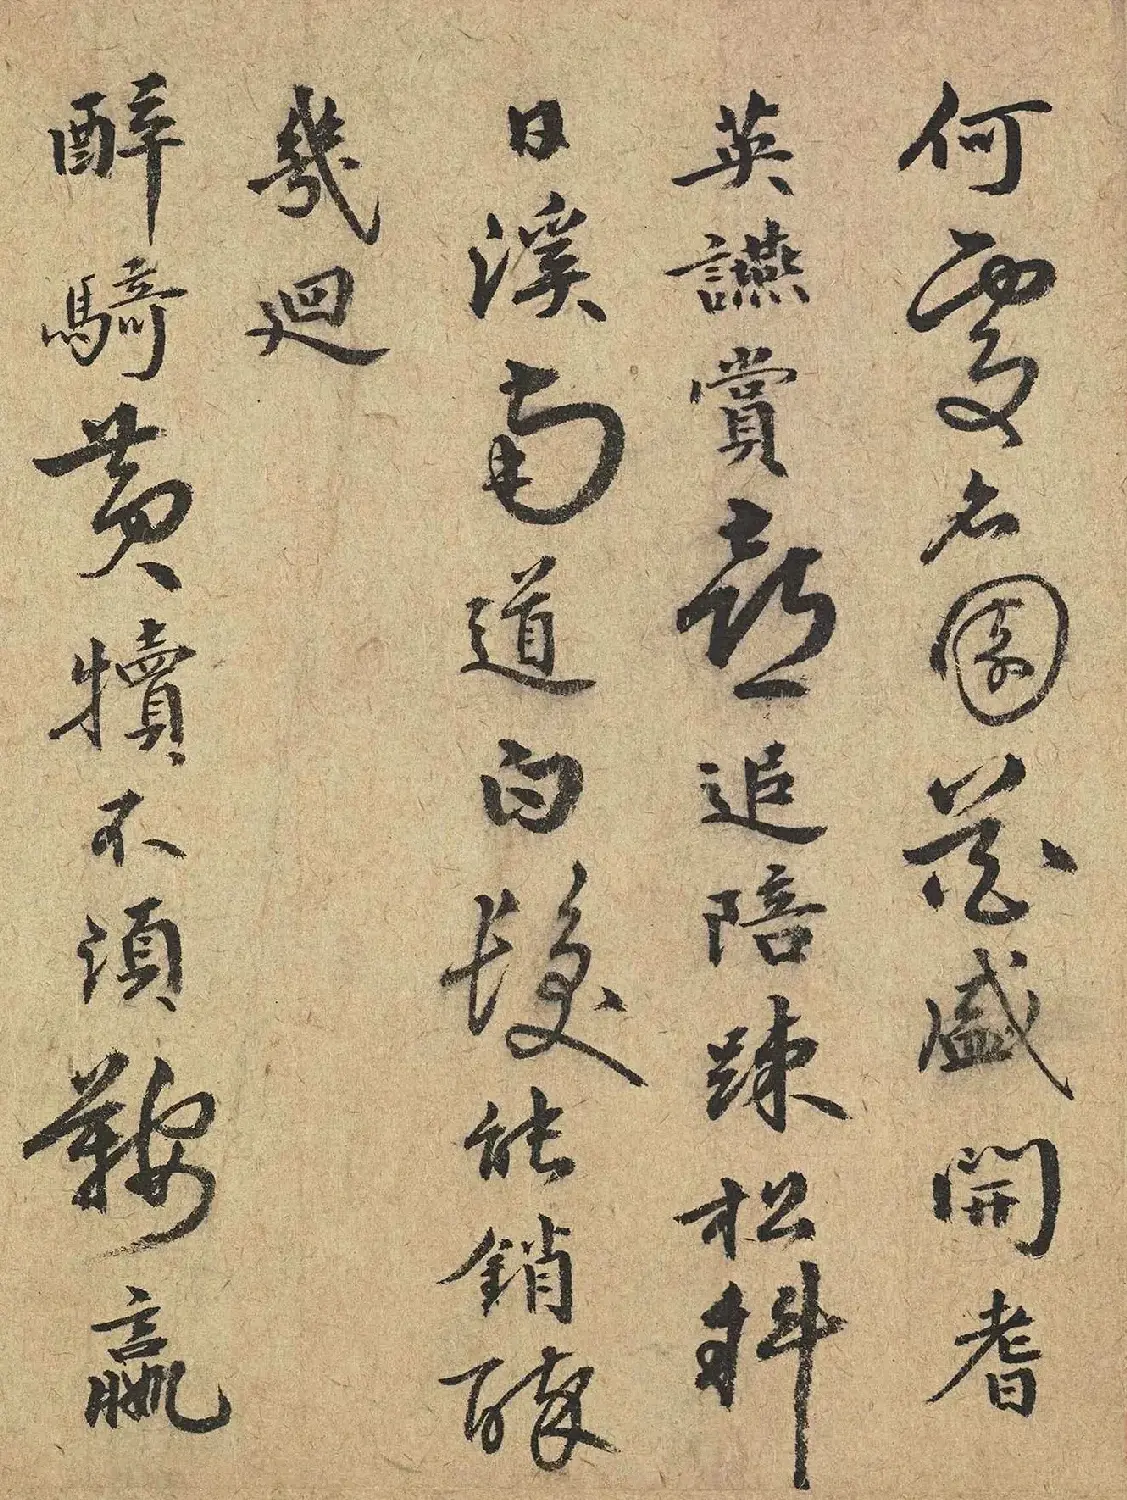 何處名園花盛開耆
英讌賞喜追陪踈松斜
日溪南道白髮能銷醉
幾迴
醉騎黃犢不須鞍贏